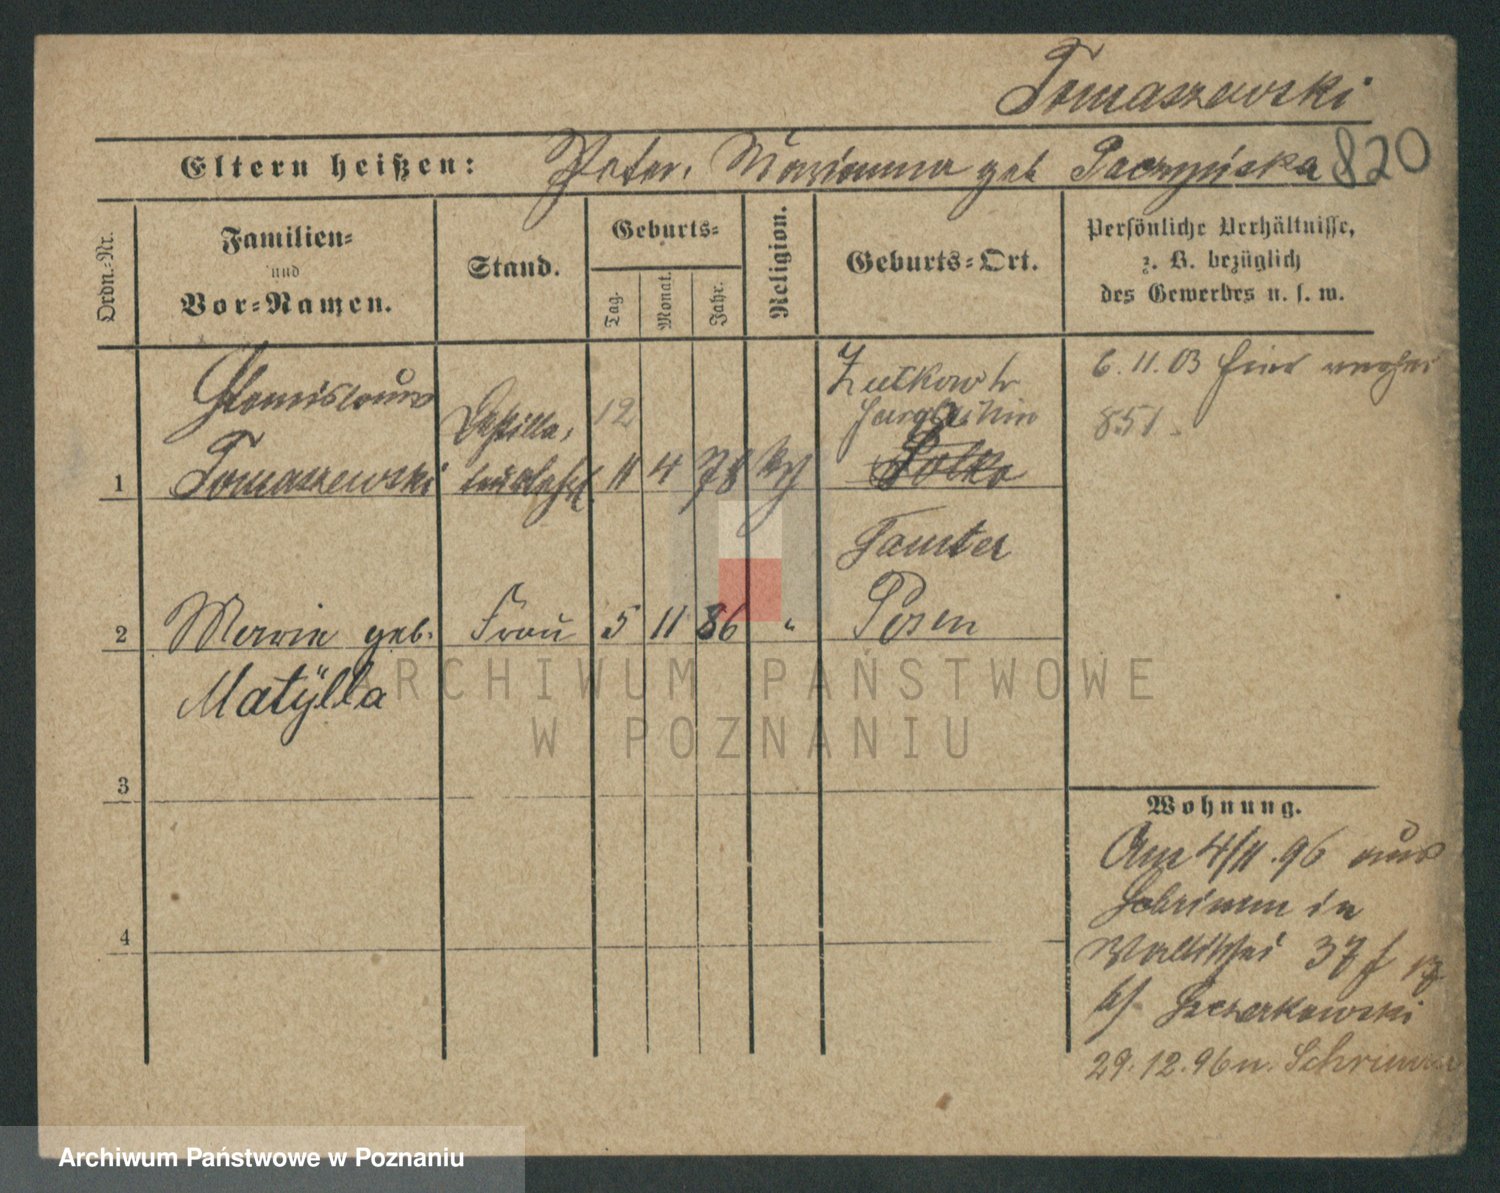 Tomaszewski
820
Eltern heißen: Peter, Marianna geb Paczyńska
Ordn.-Nr.
Familien-
und
Vor-Namen.
Stand.
Geburts-
Tag.
Monat.
Jahr.
Religion.
Geburts-Ort.
Persönliche Verhältnisse,
z. B. bezüglich
des Gewerbes u. s. w.
1 Stanislaus
Tomaszewski
12
11 4 78
6. 11. 03 hier
851
Samter
2 Marie geb. Frau 5 11 86 " Posen
Matÿlla
3
4
Wohnung.
Am 4/11. 96 aus
Schrimm in
Wallischei 37
29. 12. 96 n. Schrimm
ARCHIWUM PAŃSTWOWE
W POZNANIU
Archiwum Państwowe w Poznaniu